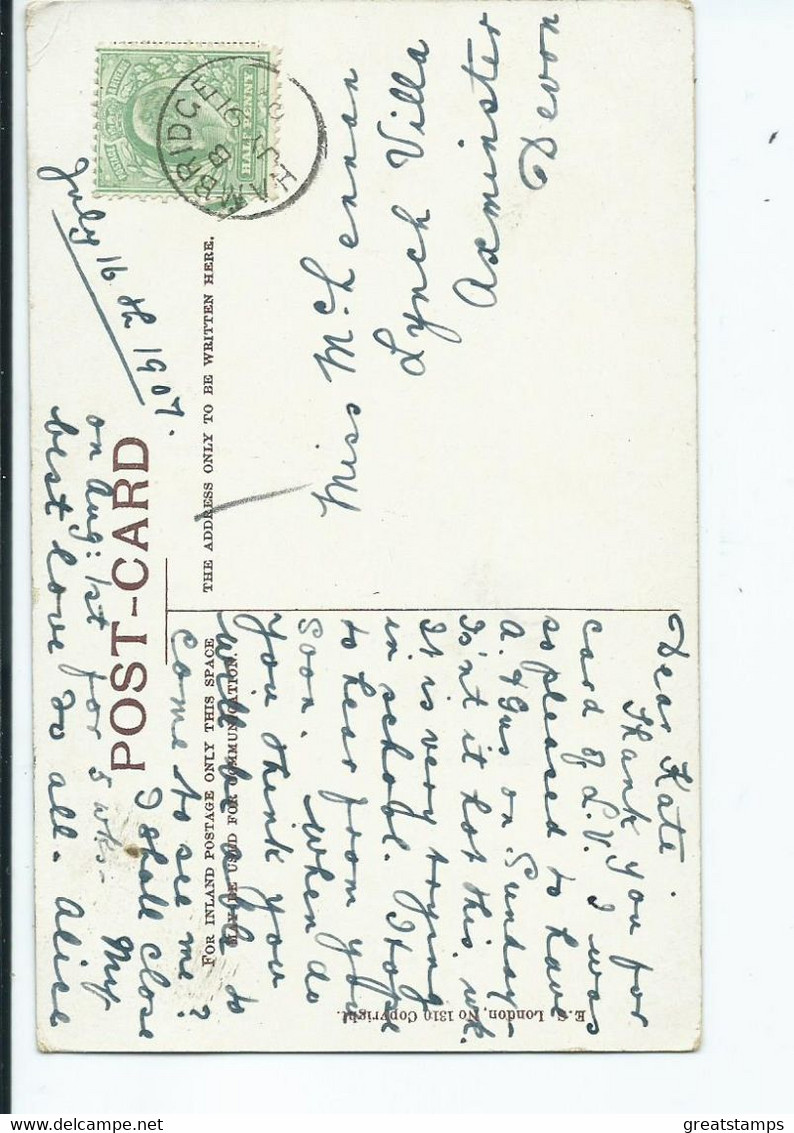 POST-CARD
FOR INLAND POSTAGE ONLY THIS SPACE
MAY BE USED FOR COMMUNICATION.
THE ADDRESS ONLY TO BE WRITTEN HERE.
HALFPENNY
HAMBRIDGE
B
July 16th 1907.
Dear Kate.
Thank you for
card of L.V. I was
so pleased to have
A. & Gus on Sunday.
Is'nt it hot this wk.
It is very trying
in school. I hope
to hear from you
soon. When do
you think you
will be able to
come to see me?
I shall close
on Aug: 1st for 5 wks. My
best love to all. Alice
Miss McLennan
Lynch Villa
Axminster
Devon
E. S. London, No 1310 Copyright.
greatstamps